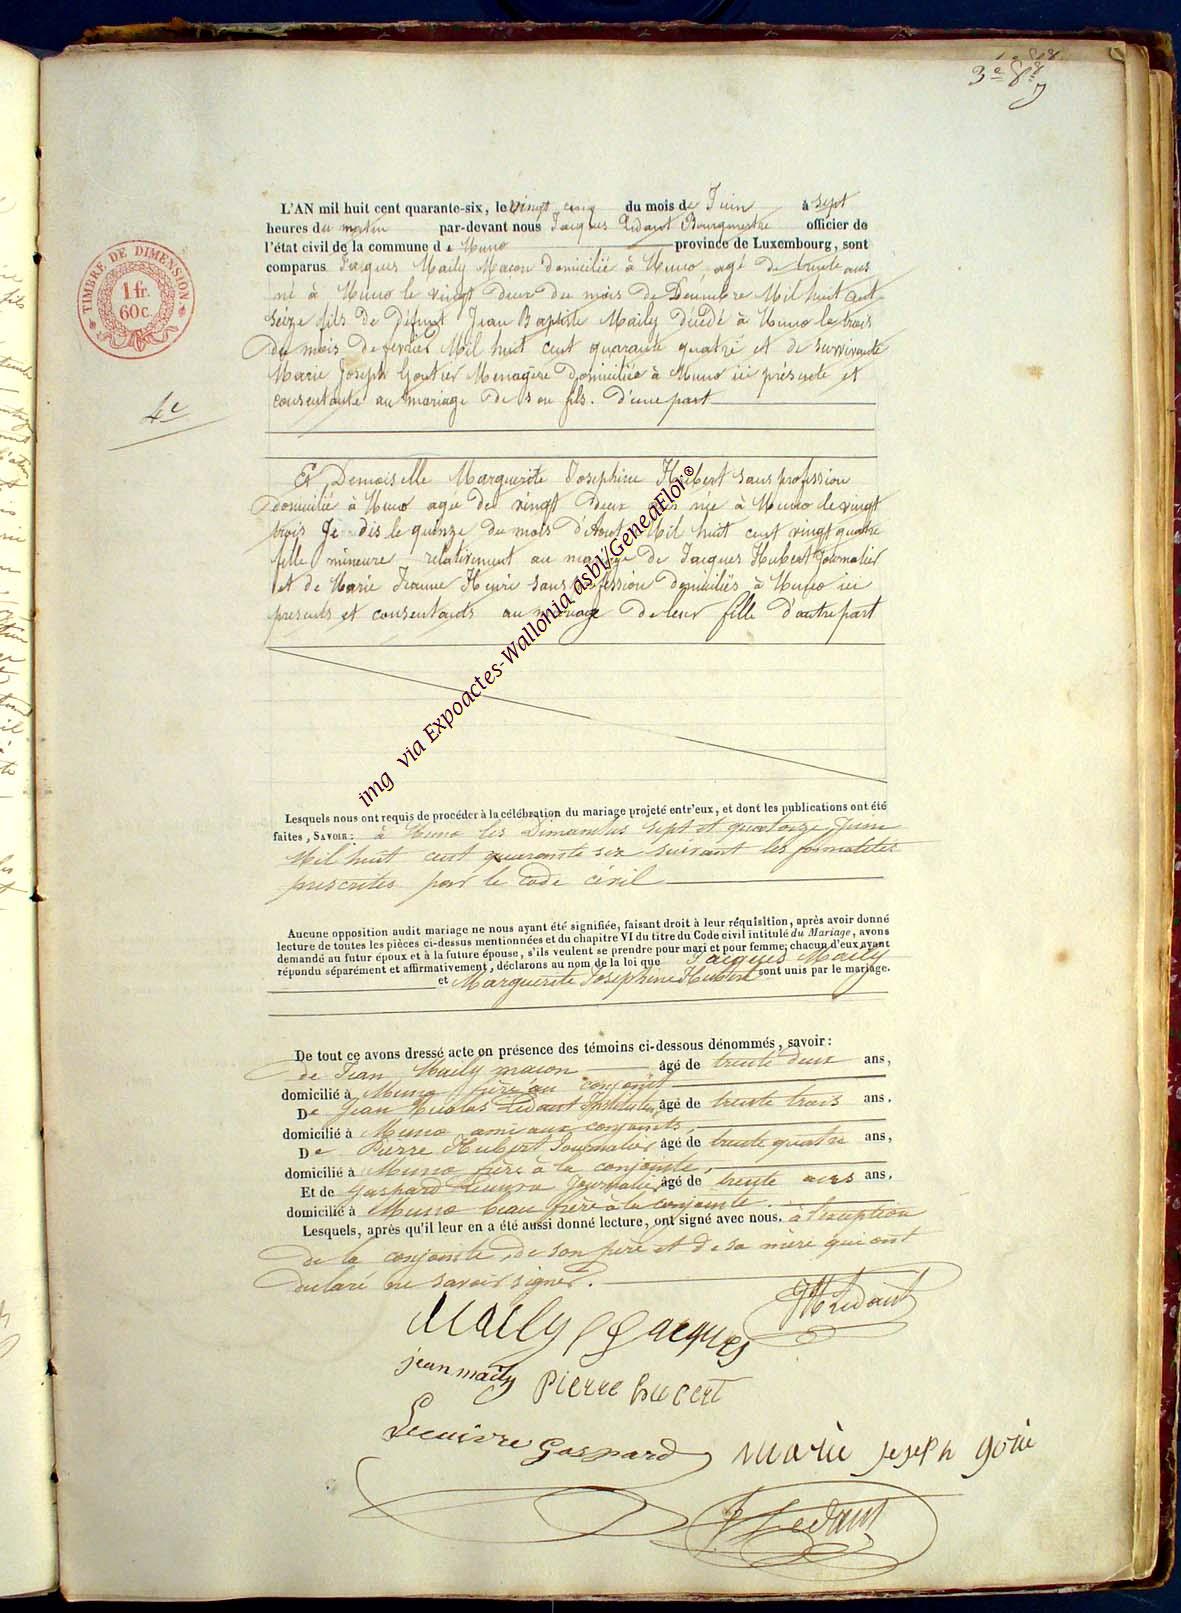 3e
TIMBRE DE DIMENSION
1 fr.
60 c.
4e
L'AN mil huit cent quarante-six, le vingt cinq du mois de Juin à sept
heures du matin par-devant nous Jacques Ledant Bourgmestre officier de
l'état civil de la commune de Muno province de Luxembourg, sont
comparus Jacques Maily Maçon domicilié à Muno agé de trente ans
né à Muno le vingt deux du mois de Décembre Mil huit cent
seize fils de défunt Jean Baptiste Maily décédé à Muno le trois
du mois de fevrier Mil huit cent quarante quatre et de survivante
Marie Joseph Menagère domiciliée à Muno ici présente et
consentante au mariage de son fils. d'une part
Et Demoiselle Marguerite Josephine Hubert sans profession
domicilié à Muno agée de vingt deux ans née à Muno le vingt
trois Je dis le quinze du mois d'Aout Mil huit cent vingt quatre
fille mineure relativement au mariage de Jacques Hubert Journalier
et de Marie Jeanne Henri sans profession domiciliés à Muno ici
presents et consentants au mariage de leur fille d'autre part
img via Expoactes-Wallonia asbl/GeneaFlor©
Lesquels nous ont requis de procéder à la célébration du mariage projeté entr'eux, et dont les publications ont été
faites, SAVOIR: à Muno les Dimanches sept et quatorze Juin
Mil huit cent quarante six suivant les formalités
prescrites par le code civil
Aucune opposition audit mariage ne nous ayant été signifiée, faisant droit à leur réquisition, après avoir donné
lecture de toutes les pièces ci-dessus mentionnées et du chapitre VI du titre du Code civil intitulé du Mariage, avons
demandé au futur époux et à la future épouse, s'ils veulent se prendre pour mari et pour femme; chacun d'eux ayant
répondu séparément et affirmativement, déclarons au nom de la loi que Jacques Maily
et Marguerite Josephine Hubert sont unis par le mariage.
De tout ce avons dressé acte en présence des témoins ci-dessous dénommés, savoir:
de Jean Maily macon âgé de trente deux ans,
domicilié à Muno frère au conjoint
De Jean Nicolas Ledant Instituteur âgé de trente trois ans.
domicilié à Muno ami aux conjoints,
De Pierre Hubert Journalier âgé de trente quatre ans,
domicilié à Muno frère à la conjointe,
Et de Gaspard Journalier âgé de trente ans.
domicilié à Muno beau frère à la conjointe.
Lesquels, après qu'il leur en a été aussi donné lecture, ont signé avec nous. à l'exception
de la conjointe, de son père et de sa mère qui ont
declaré ne savoir signer.
Ledant
Maily Jacques
jean maily Pierre hubert
Lecuivre Gaspard Marie Joseph
Ledant